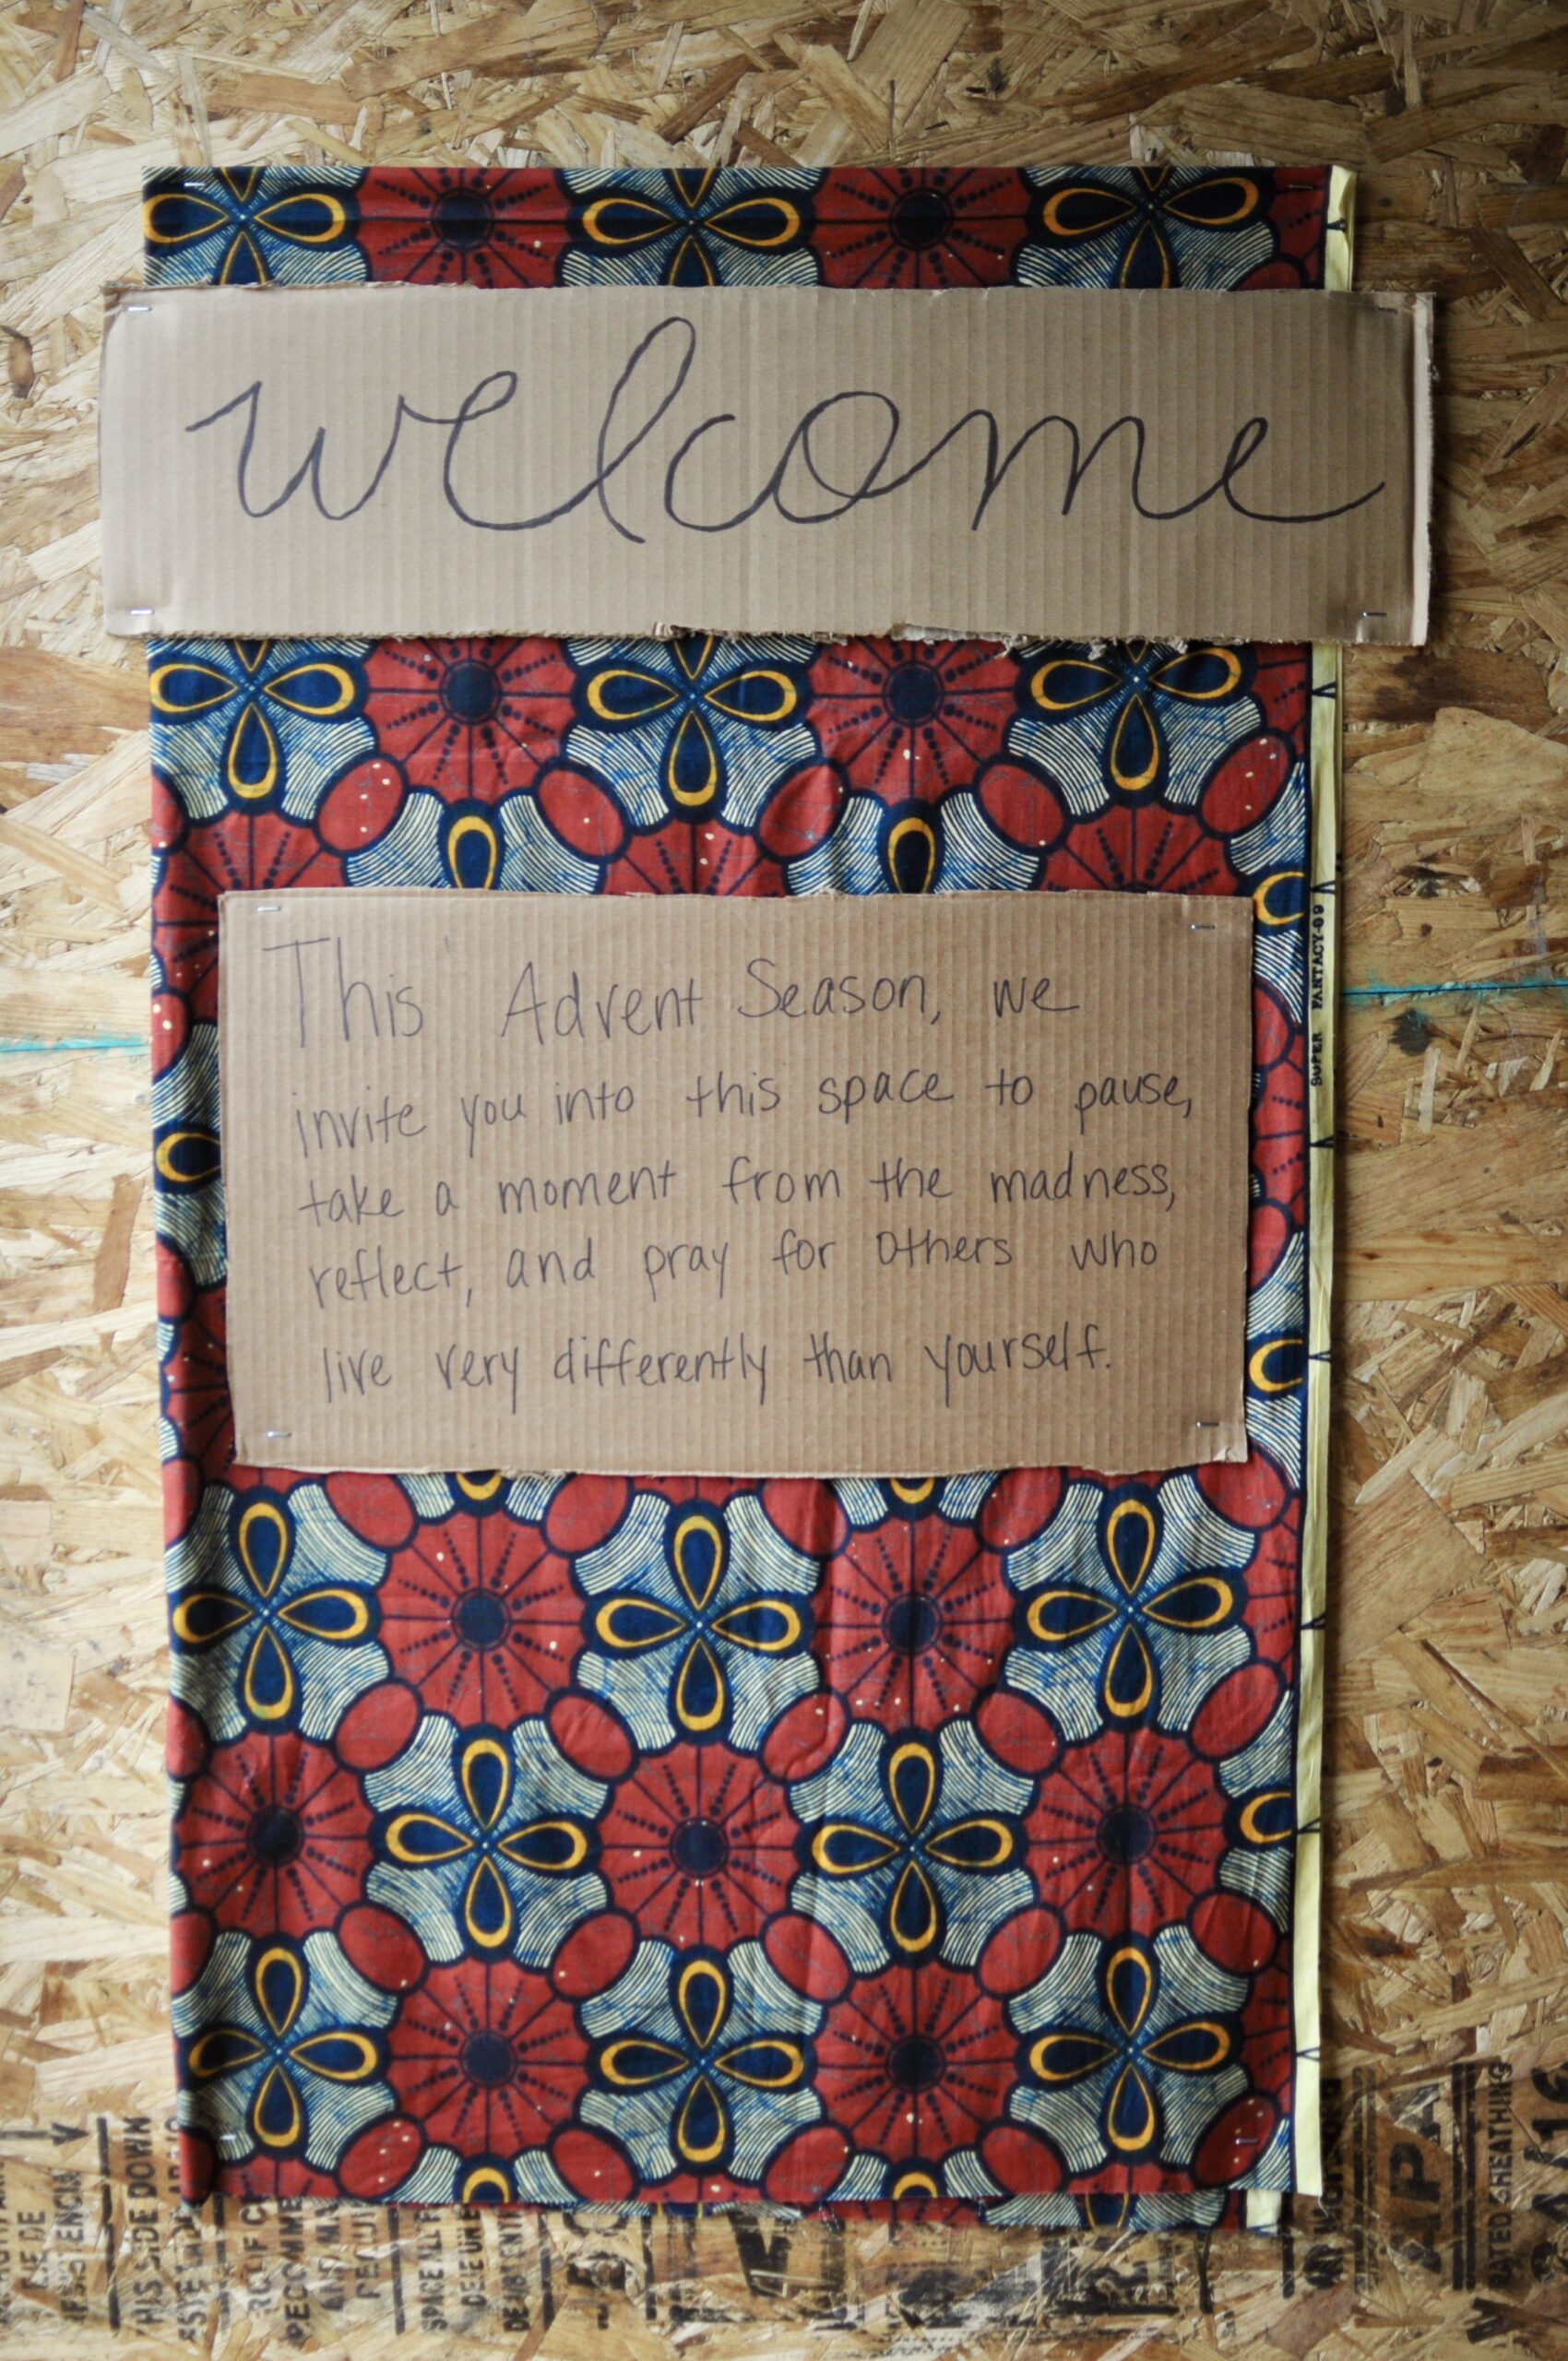 welcome
This Advent Season, we
invite you into this space to pause,
take a moment from the madness,
reflect, and pray for others who
live very differently than yourself.
SUPER FANTACY-09
THIS SIDE DOWN
APA